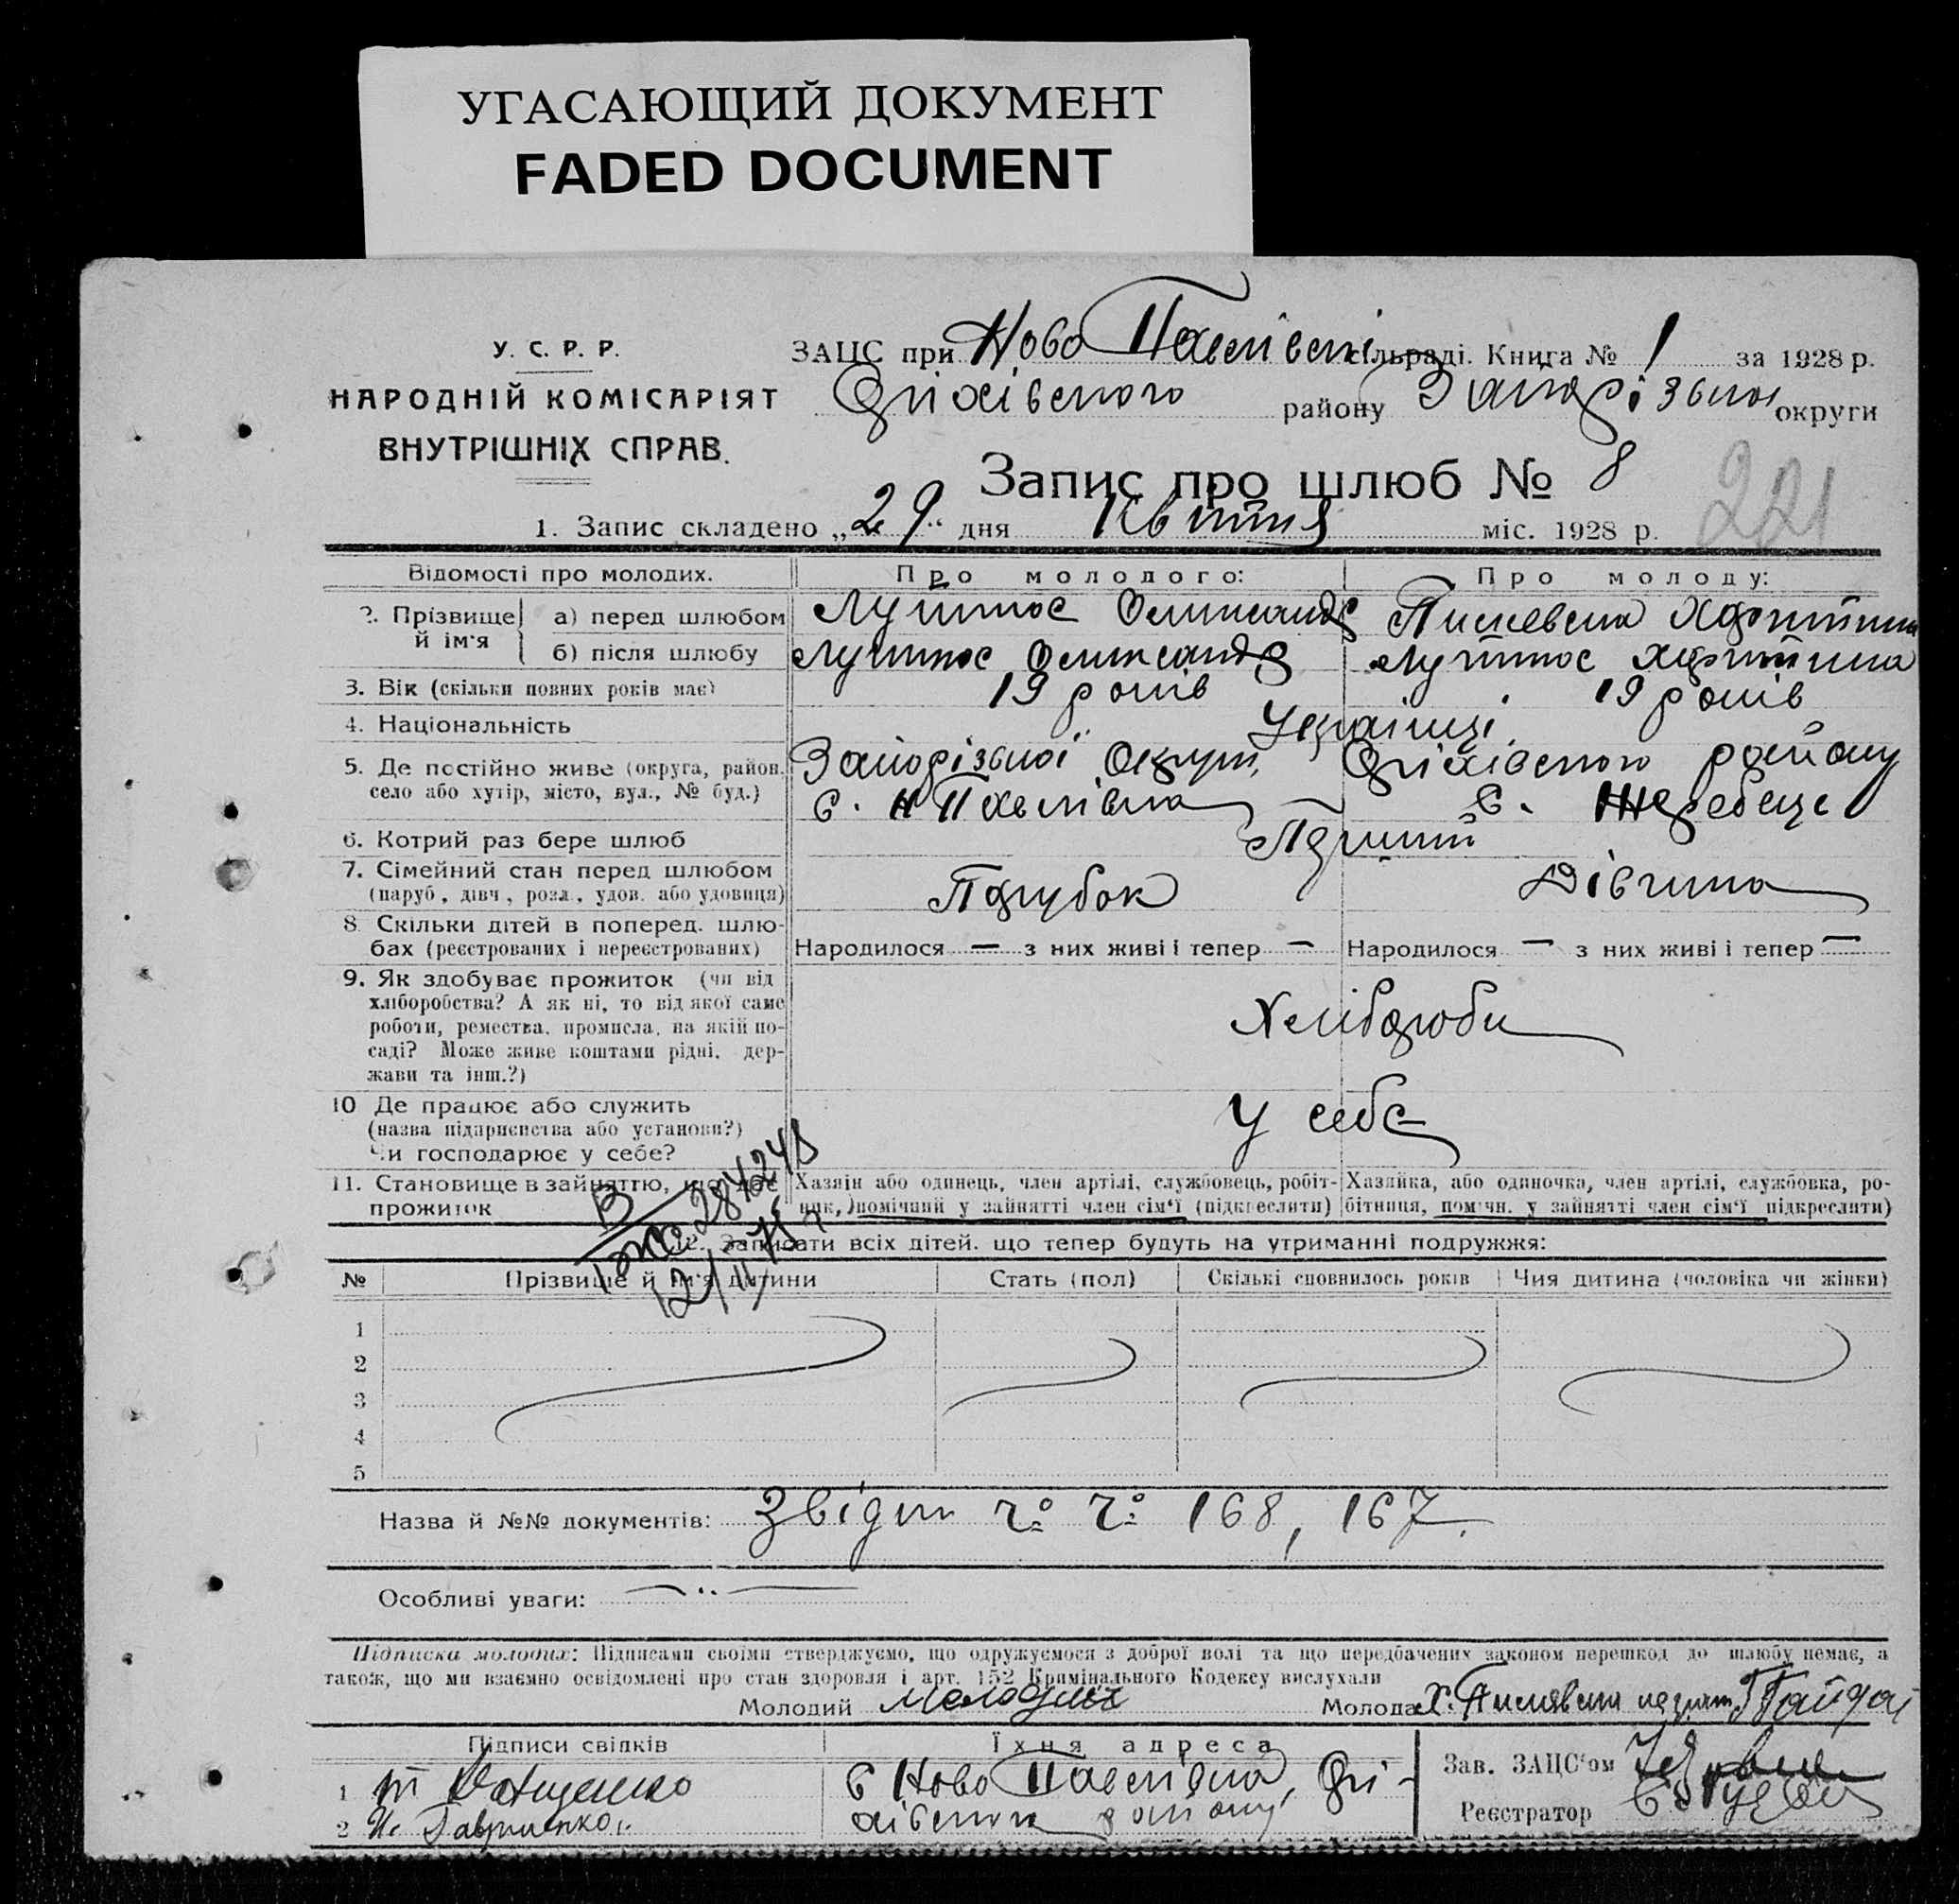 УГАСАЮЩИЙ ДОКУМЕНТ
FADED DOCUMENT
У. С. Р. Р.
НАРОДНІЙ КОМІСАРІЯТ
ВНУТРІШНІХ СПРАВ.
ЗАЦС при Ново Павлівські сільраді. Книга № 1 за 1928 р.
Оріхівського району Запорізької округи
Запис про шлюб № 8
221
1. Запис складено „29" дня Квітня міс. 1928 р.
Відомості про молодих. Про молодого: Про молоду:
2. Прізвище й ім'я
а) перед шлюбом Олександр
б) після шлюбу Олександр
3. Вік (скільки повних років має) 19 років 19 років
4. Національність Українці
5. Де постійно живе (округа, район, Запорізької Округи, Оріхівського району
село або хутір, місто, вул., № буд.) с. Н Павлівка с. Жеребець
6. Котрий раз бере шлюб Перший
7. Сімейний стан перед шлюбом Парубок Дівчина
(паруб., дівч., розл., удов. або удовиця)
8. Скільки дітей в поперед. шлю-
бах (реєстрованих і нереєстрованих) Народилося — з них живі і тепер — Народилося — з них живі і тепер —
9. Як здобуває прожиток (чи від
хліборобства? А як ні, то від якої саме
роботи, ремества, промисла, на якій по- Хлібороби
саді? Може живе коштами рідні, дер-
жави та інш.?)
10 Де працює або служить У себе
(назва підприємства або установи?)
Чи господарює у себе?
11. Становище в зайняттю, що дає Хазяін або одинець, член артілі, службовець, робіт- Хазяйка, або одиночка, член артілі, службовка, ро-
прожиток ник, помічний у зайнятті член сім'ї (підкреслити) бітниця, помічн. у зайнятті член сім'ї підкреслити)
12. Записати всіх дітей, що тепер будуть на утриманні подружжя:
№ Прізвище й ім'я дитини Стать (пол) Скількі сповнилось років Чия дитина (чоловіка чи жінки)
1
2
3
4
5
Назва й №№ документів: Звідки ч. ч. 168, 167.
Особливі уваги: — „ —
Підписка молодих: Підписами своіми стверджуємо, що одружуємося з доброї волі та що передбачених законом перешкод до шлюбу немає, а
також, що ми взаємно освідомлені про стан здоровля і арт. 152 Кримінального Кодексу вислухали
Молодий Молода
Підписи свідків Їхня адреса Зав. ЗАЦС'ом
1 с Ново Павлівка, Орі-
2 И. Гавриленко хівського району Реєстратор